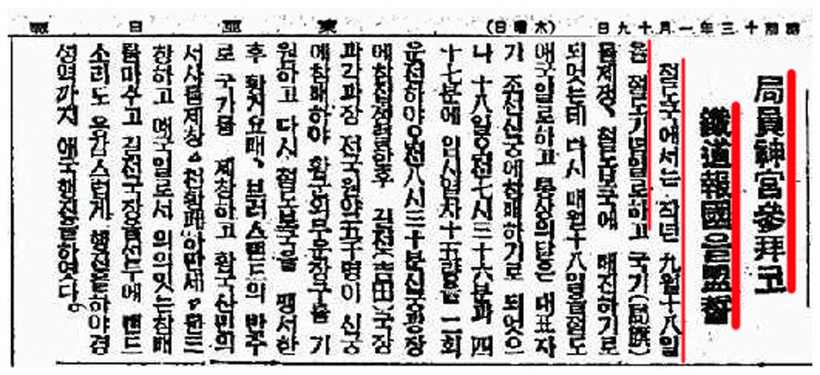 昭和十三年一月十九日 (水曜日) 東亞日報
局員神宮參拜코
鐵道報國을盟誓
철도국에서는 작년 九월十八일
을 철도기념일로하고 국기(局旗)
를제정、철도보국에 매진하기로
되엇는데 다시 매월十八일을철도
애국일로하고 통상의달은 대표자
가 조선신궁에참배하기로 되엇으
나 十八일오전七시三十六분과 四
十七분에 임시열차十五량을 二회
운전하야오전八시三十분신궁광장
에참집정렬한후 길전(吉田)국장
과각과장 전국원약五千명이 신궁
에참배하야 황군의무운장구를 기
원하고 다시 철도보국을 맹서한
후 황거요배、부라스밴드의 반주
로 국가를 제창하고 황국신민의
서사를제창、천황폐하만세를
창하고 애국일로서 의의잇는참배
를마추고 길전국장을선두에 밴드
소리도 용감스럽게 행진을하야경
성역까지 애국행진을하엿다。